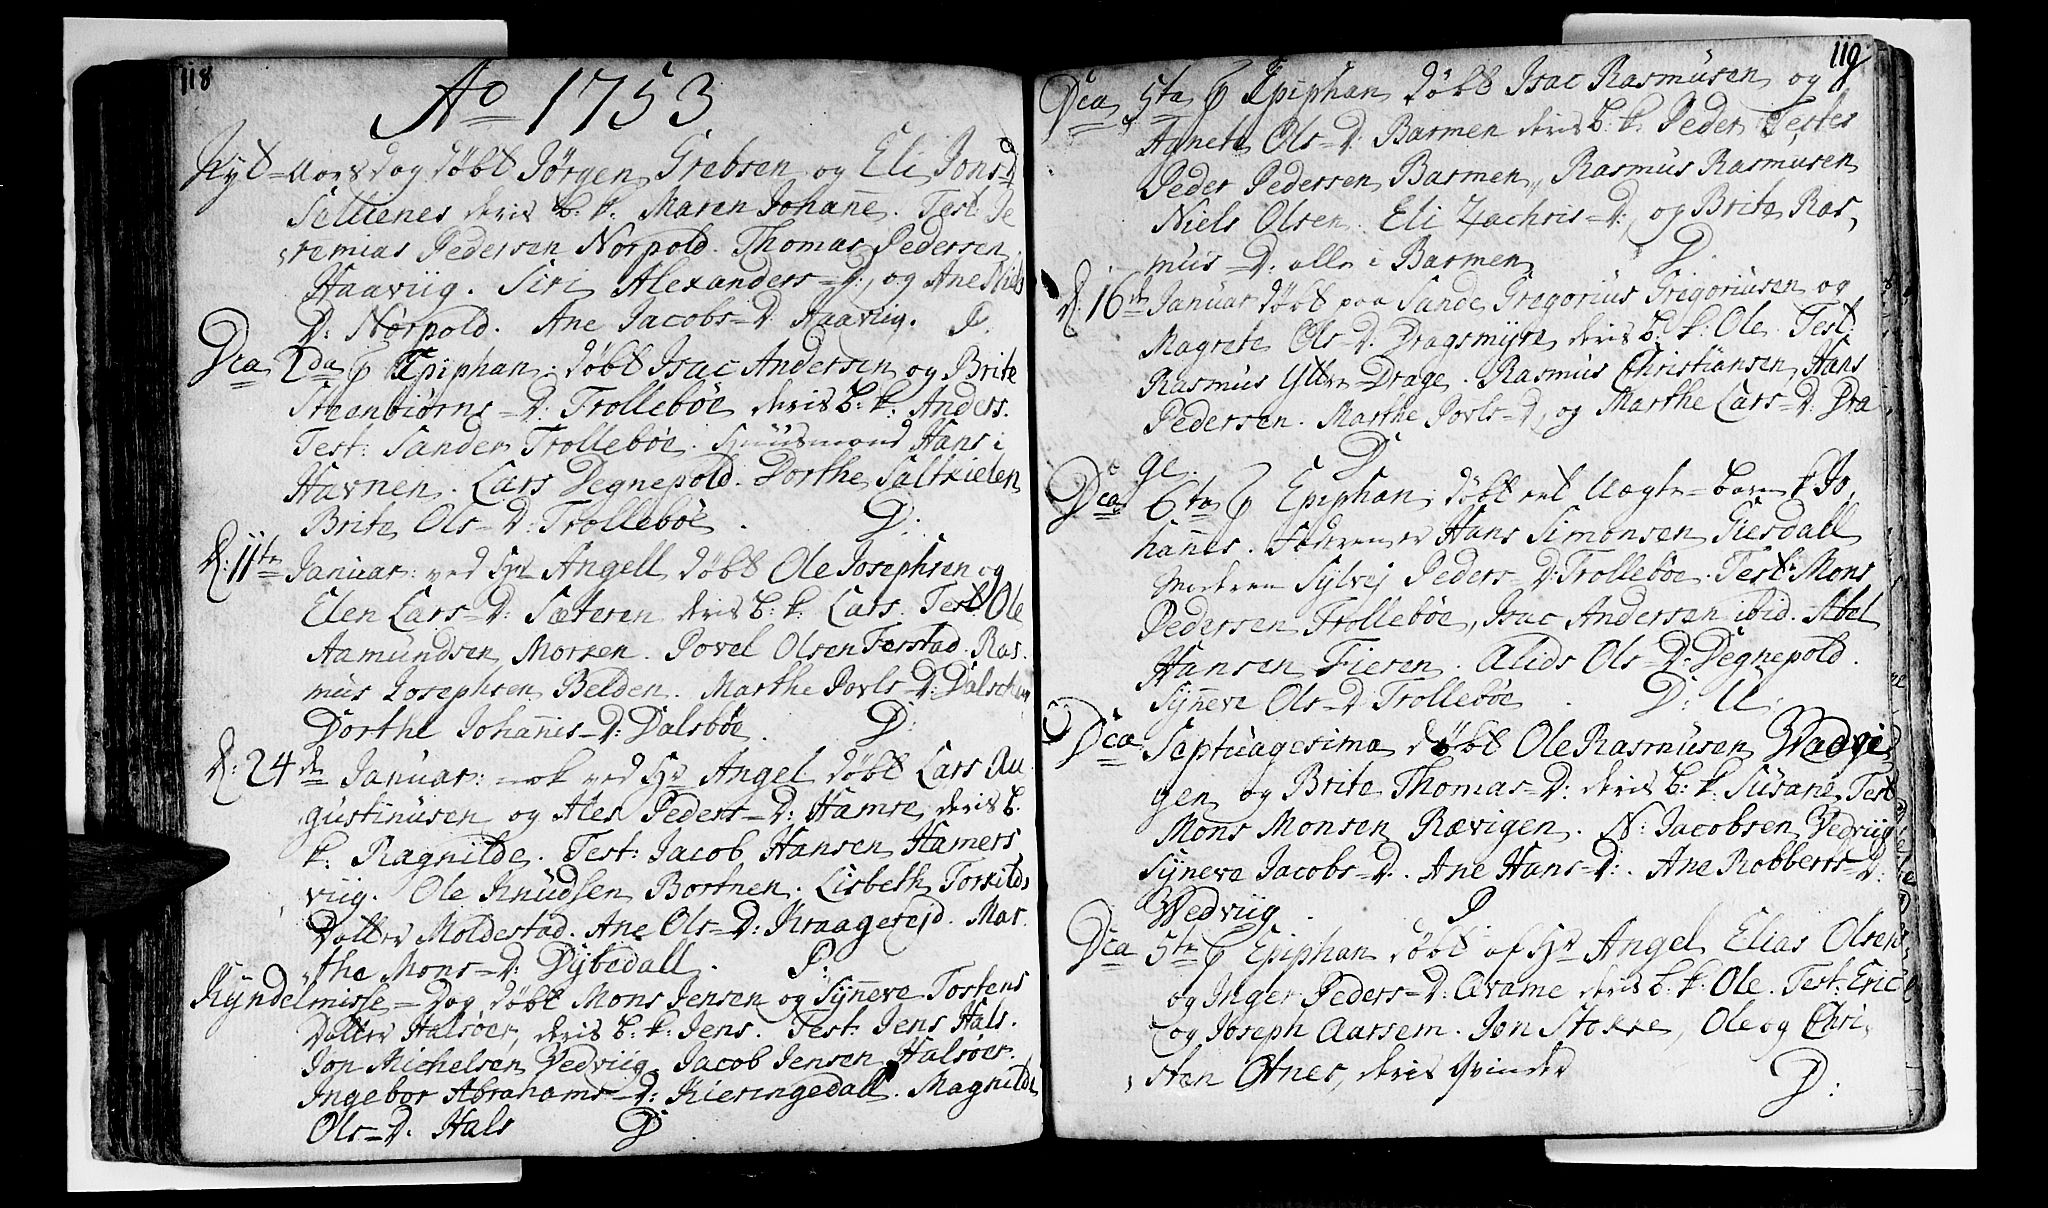 118
Ao 1753
Nyt-Aars dag döbt Jörgen Grebsen og Eli Jons-D
Salienes deris b: k: Maren Johanne. Test: Je
remias Pedersen Norpold. Thomas Pedersen
Haaviig. Siri Alexanders-D:, og Ane Niels
D: Norpold. Ane Jacobs-D: Haaviig. P.
Dca 2da p Epiphan: döbt Isac Andersen og Brite
Steenbiörns-D: Trolleböe deris b: k: Anders.
Test: Sander Trolleböe. Huusmand Hans i
Havnen. Lars Degnepold. Dorthe Saltkielen
Brite Ols-D: Trolleböe. D:
d: 11te Januar: ved Hr Angell döbt Ole Josephsen og
Elen Lars-D: Sæteren deris b: k: Lars. Test Ole
Aamundsen Morken. Povel Olsen Færstad. Ras
mus Josephsen Belden. Marthe Povls-D: Dalsch
Dorthe Johannis-D: Dalsböe. D:
d: 24de Januar: nok ved Hr Angel döbt Lars Au
gustinusen og Ales Peders-D: Hamre, deris b.
k: Ragnilde. Test: Jacob Hansen Hamers
viig. Ole Knudsen Bortnen. Lisbeth Torkilds
Datter Moldestad. Ane Ols-D: Kraagereid. Mar
the Mons-D: Dybedall. P:
Kyndelmisse-Dag döbt Mons Jensen og Synneve Tostens
Datter Halsöer, deris b: k: Jens. Test: Jens Hals.
Jon Michelsen Vedviig. Jacob Jensen Halsöer.
Ingebor Abrahams-D: Kieringedall. Magnilde
Ols-D. Hals D
119
Dca 5ta p Epiphan döbt Isac Rasmusen og
Agnete Ols-D: Barmen deris b: k: Peder Testes
Peder Pedersen Barmen, Rasmus Rasmusen
Niels Olsen. Eli Zachris-D:, og Brite Ras,
mus-D: alle i Barmen D.
d: 16de Januar döbt paa Sande Gregorius Grigoriusen og
Magrete Ols-D: Dragsmyre deris b: k: Ole. Test:
Rasmus Ytre-Drage. Rasmus Christiansen, Hans
Pedersen. Marthe Povls-D, og Marthe Lars-D: Dra
ge. D
Dca 6ta p Epiphan: döbt eet Uægte-barn k: Jo,
hannes. Faderen er Hans Simonsen Giesdall
Moderen Sylvej Peders-D: Trolleböe. Test: Mons
Pedersen Trolleböe, Isac Andersen ibid. Abel
Hansen Fieren. Alids Ols-D: Degnepold.
Synneve Ols-D Trolleböe. D: U.
Dca Septuagesima döbt Ole Rasmusen Rævi
gen og Brite Thomas-D: deris b: k: Susane, Test
Mons Monsen Rævigen. N: Jacobsen Vedviig
Synneve Jacobs-D. Ane Hans-D:. Ane Robberts-D:
Vedviig. P
Dca 5te p Epiphan döbt af Hr Angel Elias Olsen
og Inger Peders-D: Arame deris b: k: Ole. Test: Eric
og Joseph Aarsem. Jon Stokke, Ole og Chri,
sten Otnes, deris Qvinder D: